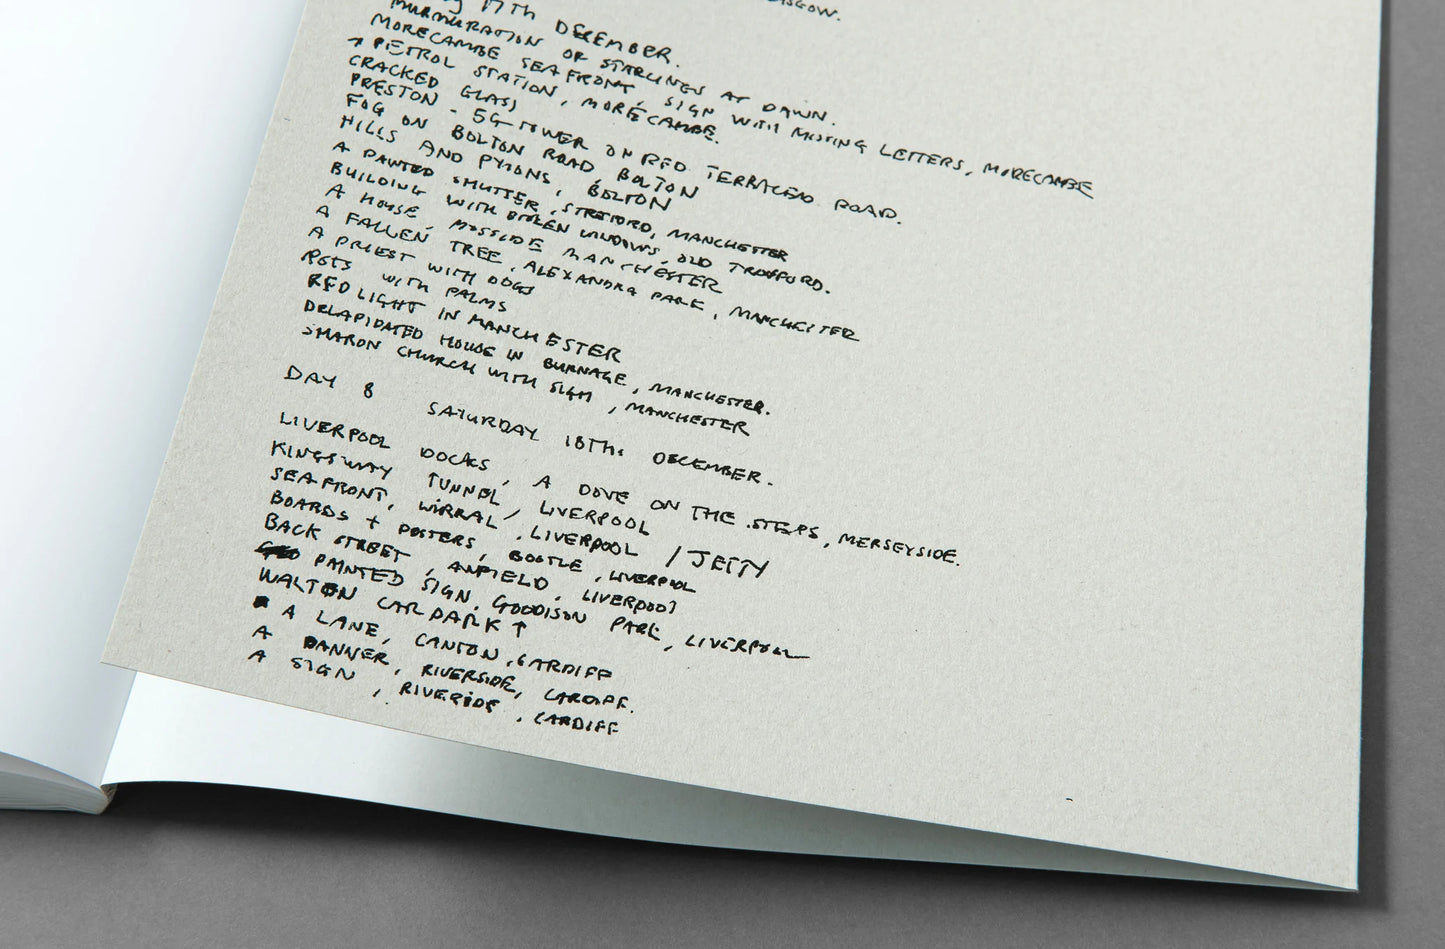 17TH DECEMBER.
MURMURATION OF STARLINGS AT DAWN.
MORECAMBE SEAFRONT, SIGN WITH MISSING LETTERS, MORECAMBE
+ PETROL STATION, MORECAMBE.
CRACKED GLASS
PRESTON - 5G TOWER ON RED TERRACED ROAD.
FOG ON BOLTON ROAD, BOLTON
HILLS AND PYLONS, BOLTON
A PAINTED SHUTTER, STRETFORD, MANCHESTER
BUILDING WITH BROKEN WINDOWS, OLD TRAFFORD.
A HOUSE, MOSSSIDE MANCHESTER
A FALLEN TREE, ALEXANDRA PARK, MANCHESTER
A PRIEST WITH DOGS
POTS WITH PALMS
RED LIGHT IN MANCHESTER
DELAPIDATED HOUSE IN BURNAGE, MANCHESTER.
SHARON CHURCH WITH SIGN, MANCHESTER
DAY 8 SATURDAY 18TH. DECEMBER.
LIVERPOOL DOCKS, A DOVE ON THE STEPS, MERSEYSIDE.
KINGSWAY TUNNEL, LIVERPOOL
SEAFRONT, WIRRAL, LIVERPOOL / JETTY
BOARDS + POSTERS, BOOTLE, LIVERPOOL
BACK STREET, ANFIELD, LIVERPOOL
PAINTED SIGN, GOODISON PARK, LIVERPOOL
WALTON CAR PARK ↑
A LANE, CANTON, CARDIFF
A BANNER, RIVERSIDE, CARDIFF.
A SIGN, RIVERSIDE, CARDIFF